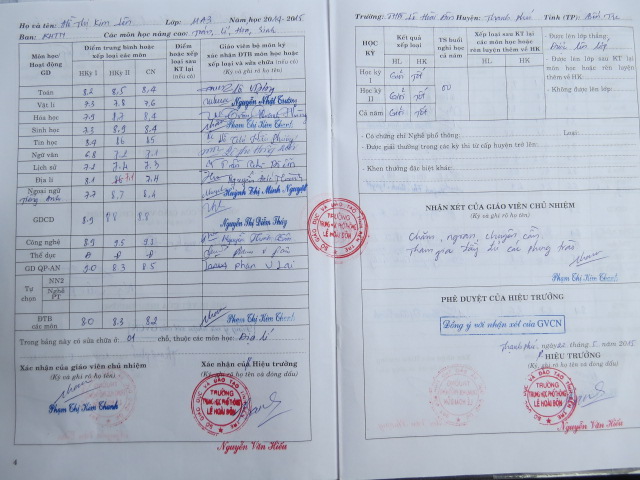 Họ và tên: Hồ Thị Kim Lớp: 11A3 Năm học 2014-2015
Ban: KHTN Các môn học nâng cao: Toán, Lí, Hóa, Sinh
Môn học/ Hoạt động GD
Điểm trung bình hoặc xếp loại các môn
HKỳ I HKỳ II CN
Điểm hoặc xếp loại sau KT lại (nếu có)
Giáo viên bộ môn ký xác nhận ĐTB môn học và sửa chữa (nếu có)
(Ký và ghi rõ họ tên)
Toán 8.2 8.5 8.4
Vật lí 7.3 7.8 7.6 Nguyễn Nhật Trường
Hóa học 7.9 8.7 8.4
Sinh học 7.3 8.9 8.4 Phạm Thị Kim Chanh
Tin học 8.4 8.6 8.5
Ngữ văn 6.8 7.1
Lịch sử 7.1 7.4 7.3
Địa lí 8.1 7.1 7.4
Ngoại ngữ Tiếng Anh 7.7 8.7 8.4 Huỳnh Thị Minh Nguyệt
GDCD 8.9 8.8 8.8
Nguyễn Thị Diễm Thúy
Công nghệ 8.9 9.5 9.3
Thể dục đ đ đ
GD QP-AN 9.0 8.3 8.5
Tự chọn
NN2
Nghề PT
ĐTB các môn 8.0 8.3 8.2 Phạm Thị Kim Chanh
Trong bảng này có sửa chữa ở: 01 chỗ, thuộc các môn học: Địa lí
Xác nhận của giáo viên chủ nhiệm
(Ký và ghi rõ họ tên)
Phạm Thị Kim Chanh
Xác nhận của Hiệu trưởng
(Ký, ghi rõ họ tên và đóng dấu)
TRƯỜNG
TRUNG HỌC PHỔ THÔNG
LÊ HOÀI ĐÔN
Nguyễn Văn Hiếu
4
Trường: THPT Lê Hoài Đôn Huyện: Thạnh Phú Tỉnh (TP): Bến Tre
HỌC KỲ
Kết quả xếp loại
HL HK
TS buổi nghỉ học cả năm
Xếp loại sau KT lại các môn học hoặc rèn luyện thêm về HK
HL HK
Học kỳ I Giỏi Tốt
Học kỳ II Giỏi Tốt
Cả năm Giỏi Tốt
- Được lên lớp thẳng:
Được lên lớp
- Được lên lớp sau KT lại môn học hoặc rèn luyện thêm về HK:
- Không được lên lớp:
- Có chứng chỉ Nghề phổ thông: Loại:
- Được giải thưởng trong các kỳ thi từ cấp huyện trở lên:
- Khen thưởng đặc biệt khác:
NHẬN XÉT CỦA GIÁO VIÊN CHỦ NHIỆM
(Ký và ghi rõ họ tên)
Chăm, ngoan, chuyên cần
Tham gia đầy đủ các phong trào
Phạm Thị Kim Chanh
PHÊ DUYỆT CỦA HIỆU TRƯỞNG
Đồng ý với nhận xét của GVCN
Thạnh Phú, ngày 22 tháng 5 năm 2015
HIỆU TRƯỞNG
(Ký, ghi rõ họ tên và đóng dấu)
TRƯỜNG
TRUNG HỌC PHỔ THÔNG
LÊ HOÀI ĐÔN
Nguyễn Văn Hiếu